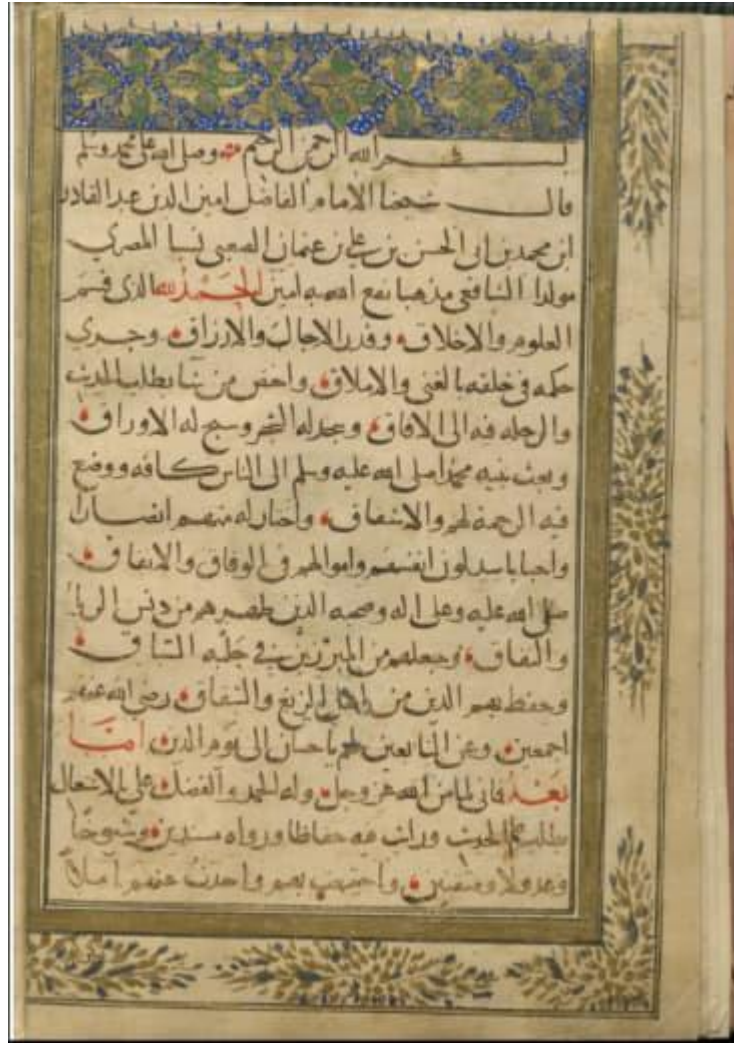 بسم الله الرحمن الرحيم وصلى الله على محمد وسلم
قال شيخنا الامام الفاضل امين الدين عبد القادر
ابن محمد بن ابي الحسن بن علي بن عثمان الصعبي نسبا المصري
مولدا الشافعي مذهبا نفع الله به امين الحمد لله الذي قسم
العلوم والاخلاق وقدر الاجال والارزاق وجري
حكمه في خلقه بالغنى والاملاق واختص من شا بطلب الحديث
والرحله فيه الى الافاق وسجد له الشجر وسبح له الاوراق
وبعث نبيه محمدا صلى الله عليه وسلم الى الناس كافه ووضع
فيه الرحمة لهم والاشفاق واختار له منهم انصارا
واحبابا يبذلون انفسهم واموالهم في الوفاق والانفاق
صلى الله عليه وعلى اله وصحبه الذين طهرهم من دنس الريا
والنفاق وجعلهم من المبرزين في حلبه السباق
وحفظ بهم الدين من اهل الزيغ والشقاق رضى الله عنهم
اجمعين وعن التابعين لهم باحسان الى يوم الدين اما
بعد فاني لما من الله عز وجل وله الحمد والفضل علي بالاشتغال
بطلب علم الحديث ورايت فيه حفاظا ورواه مسندين وشيوخا
وعدولا ومتقنين واجتمعت بهم واخذت عنهم